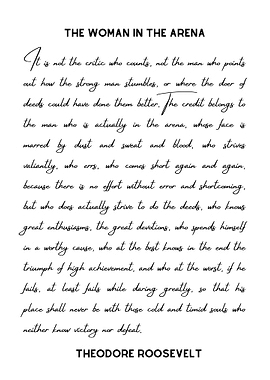 THE WOMAN IN THE ARENA
It is not the critic who counts, not the man who points
out how the strong man stumbles, or where the doer of
deeds could have done them better. The credit belongs to
the man who is actually in the arena, whose face is
marred by dust and sweat and blood, who strives
valiantly, who errs, who comes short again and again,
because there is no effort without error and shortcoming,
but who does actually strive to do the deeds, who knows
great enthusiasms, the great devotions, who spends himself
in a worthy cause, who at the best knows in the end the
triumph of high achievement, and who at the worst, if he
fails, at least fails while daring greatly, so that his
place shall never be with those cold and timid souls who
neither know victory nor defeat.
THEODORE ROOSEVELT